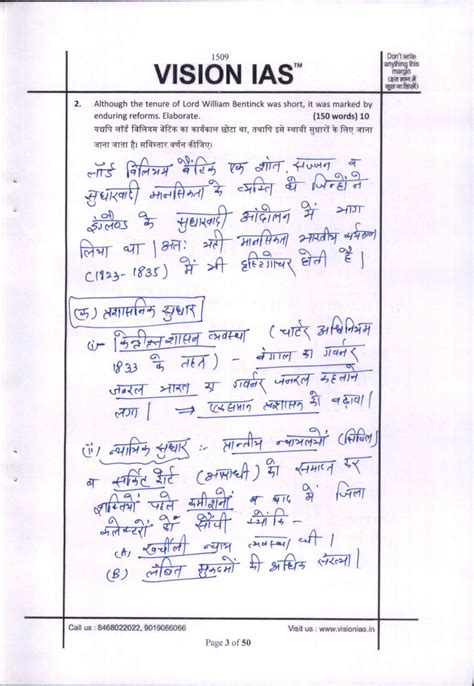 1509
VISION IAS™
Don't write
anything this
margin
(इस भाग में
कुछ ना लिखें)
2. Although the tenure of Lord William Bentinck was short, it was marked by
enduring reforms. Elaborate. (150 words) 10
यद्यपि लॉर्ड विलियम बेंटिक का कार्यकाल छोटा था, तथापि इसे स्थायी सुधारों के लिए जाना
जाना जाता है। सविस्तार वर्णन कीजिए।
लॉर्ड विलियम बैंटिक एक शांत, सज्जन व
सुधारवादी मानसिकता के व्यक्ति थे जिन्होंने
इंग्लैण्ड के सुधारवादी आंदोलन में भाग
लिया था। अतः यही मानसिकता भारतीय
में भी दृष्टिगोचर होती है।
(क) प्रशासनिक सुधार
(i) शासन व्यवस्था (चार्टर अधिनियम
1833 के तहत) - बंगाल का गवर्नर
जनरल भारत का गवर्नर जनरल कहलाने
लगा। ⇒ एकसमान प्रशासन को बढ़ावा।
(ii) न्यायिक सुधार :- प्रान्तीय न्यायालयों (सिविल)
व सर्किट कोर्ट को समाप्त कर
शक्तियाँ पहले कमीश्नरों व बाद में जिला
कलेक्टरों को सौंपी क्योंकि -
(A) खर्चीली न्याय व्यवस्था थी।
(B) लंबित मुकदमों की अधिक संख्या।
Call us : 8468022022, 9019066066
Visit us : www.visionias.in
Page 3 of 50